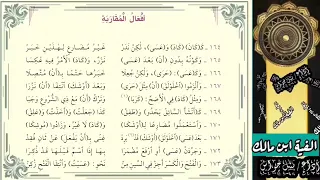 أَفْعَالُ الْمُقَارَبَةِ
١٦٤ كَـ(كَانَ) (كَادَ) وَ(عَسَى)، لَكِنْ نَدَرْ غَيْرُ مُضَارِعٍ لِهَذَيْنِ خَبَرْ
١٦٥ وَكَوْنُهُ بِدُونِ (أَنْ) بَعْدَ (عَسَى) نَزْرٌ، وَ(كَادَ) الأَمْرُ فِيهِ عُكِسَا
١٦٦ وَكَـ(عَسَى) (حَرَى)، وَلَكِنْ جُعِلَا خَبَرُهَا حَتْمًا بِـ(أَنْ) مُتَّصِلَا
١٦٧ وَأَلْزَمُوا (اخْلَوْلَقَ) (أَنْ) مِثْلَ (حَرَى) وَبَعْدَ (أَوْشَكَ) انْتِفَا (أَنْ) نَزُرَا
١٦٨ وَمِثْلُ (كَادَ) فِي الأَصَحِّ: (كَرَبَا) وَتَرْكُ (أَنْ) مَعْ ذِي الشُّرُوعِ وَجَبَا
١٦٩ كَـ(أَنْشَأَ) السَّائِقُ يَحْدُو، وَ(طَفِقْ) كَذَا (جَعَلْتُ) وَ(أَخَذْتُ) وَ(عَلِقْ)
١٧٠ وَاسْتَعْمَلُوا مُضَارِعًا لِـ(أَوْشَكَا) وَ(كَادَ) لَا غَيْرُ، وَزَادُوا (مُوشِكَا)
١٧١ بَعْدَ (عَسَى) (اخْلَوْلَقَ) (أَوْشَكَ) قَدْ يَرِدْ غِنًى بِـ(أَنْ يَفْعَلَ) عَنْ ثَانٍ فُقِدْ
١٧٢ وَجَرِّدَنْ (عَسَى) أَوِ ارْفَعْ مُضْمَرَا بِهَا إِذَا اسْمٌ قَبْلَهَا قَدْ ذُكِرَا
١٧٣ وَالْفَتْحَ وَالْكَسْرَ أَجِزْ فِي السِّينِ مِنْ نَحْوِ: (عَسَيْتُ) وَانْتِقَا الْفَتْحِ زُكِنْ
الفية ابن مالك